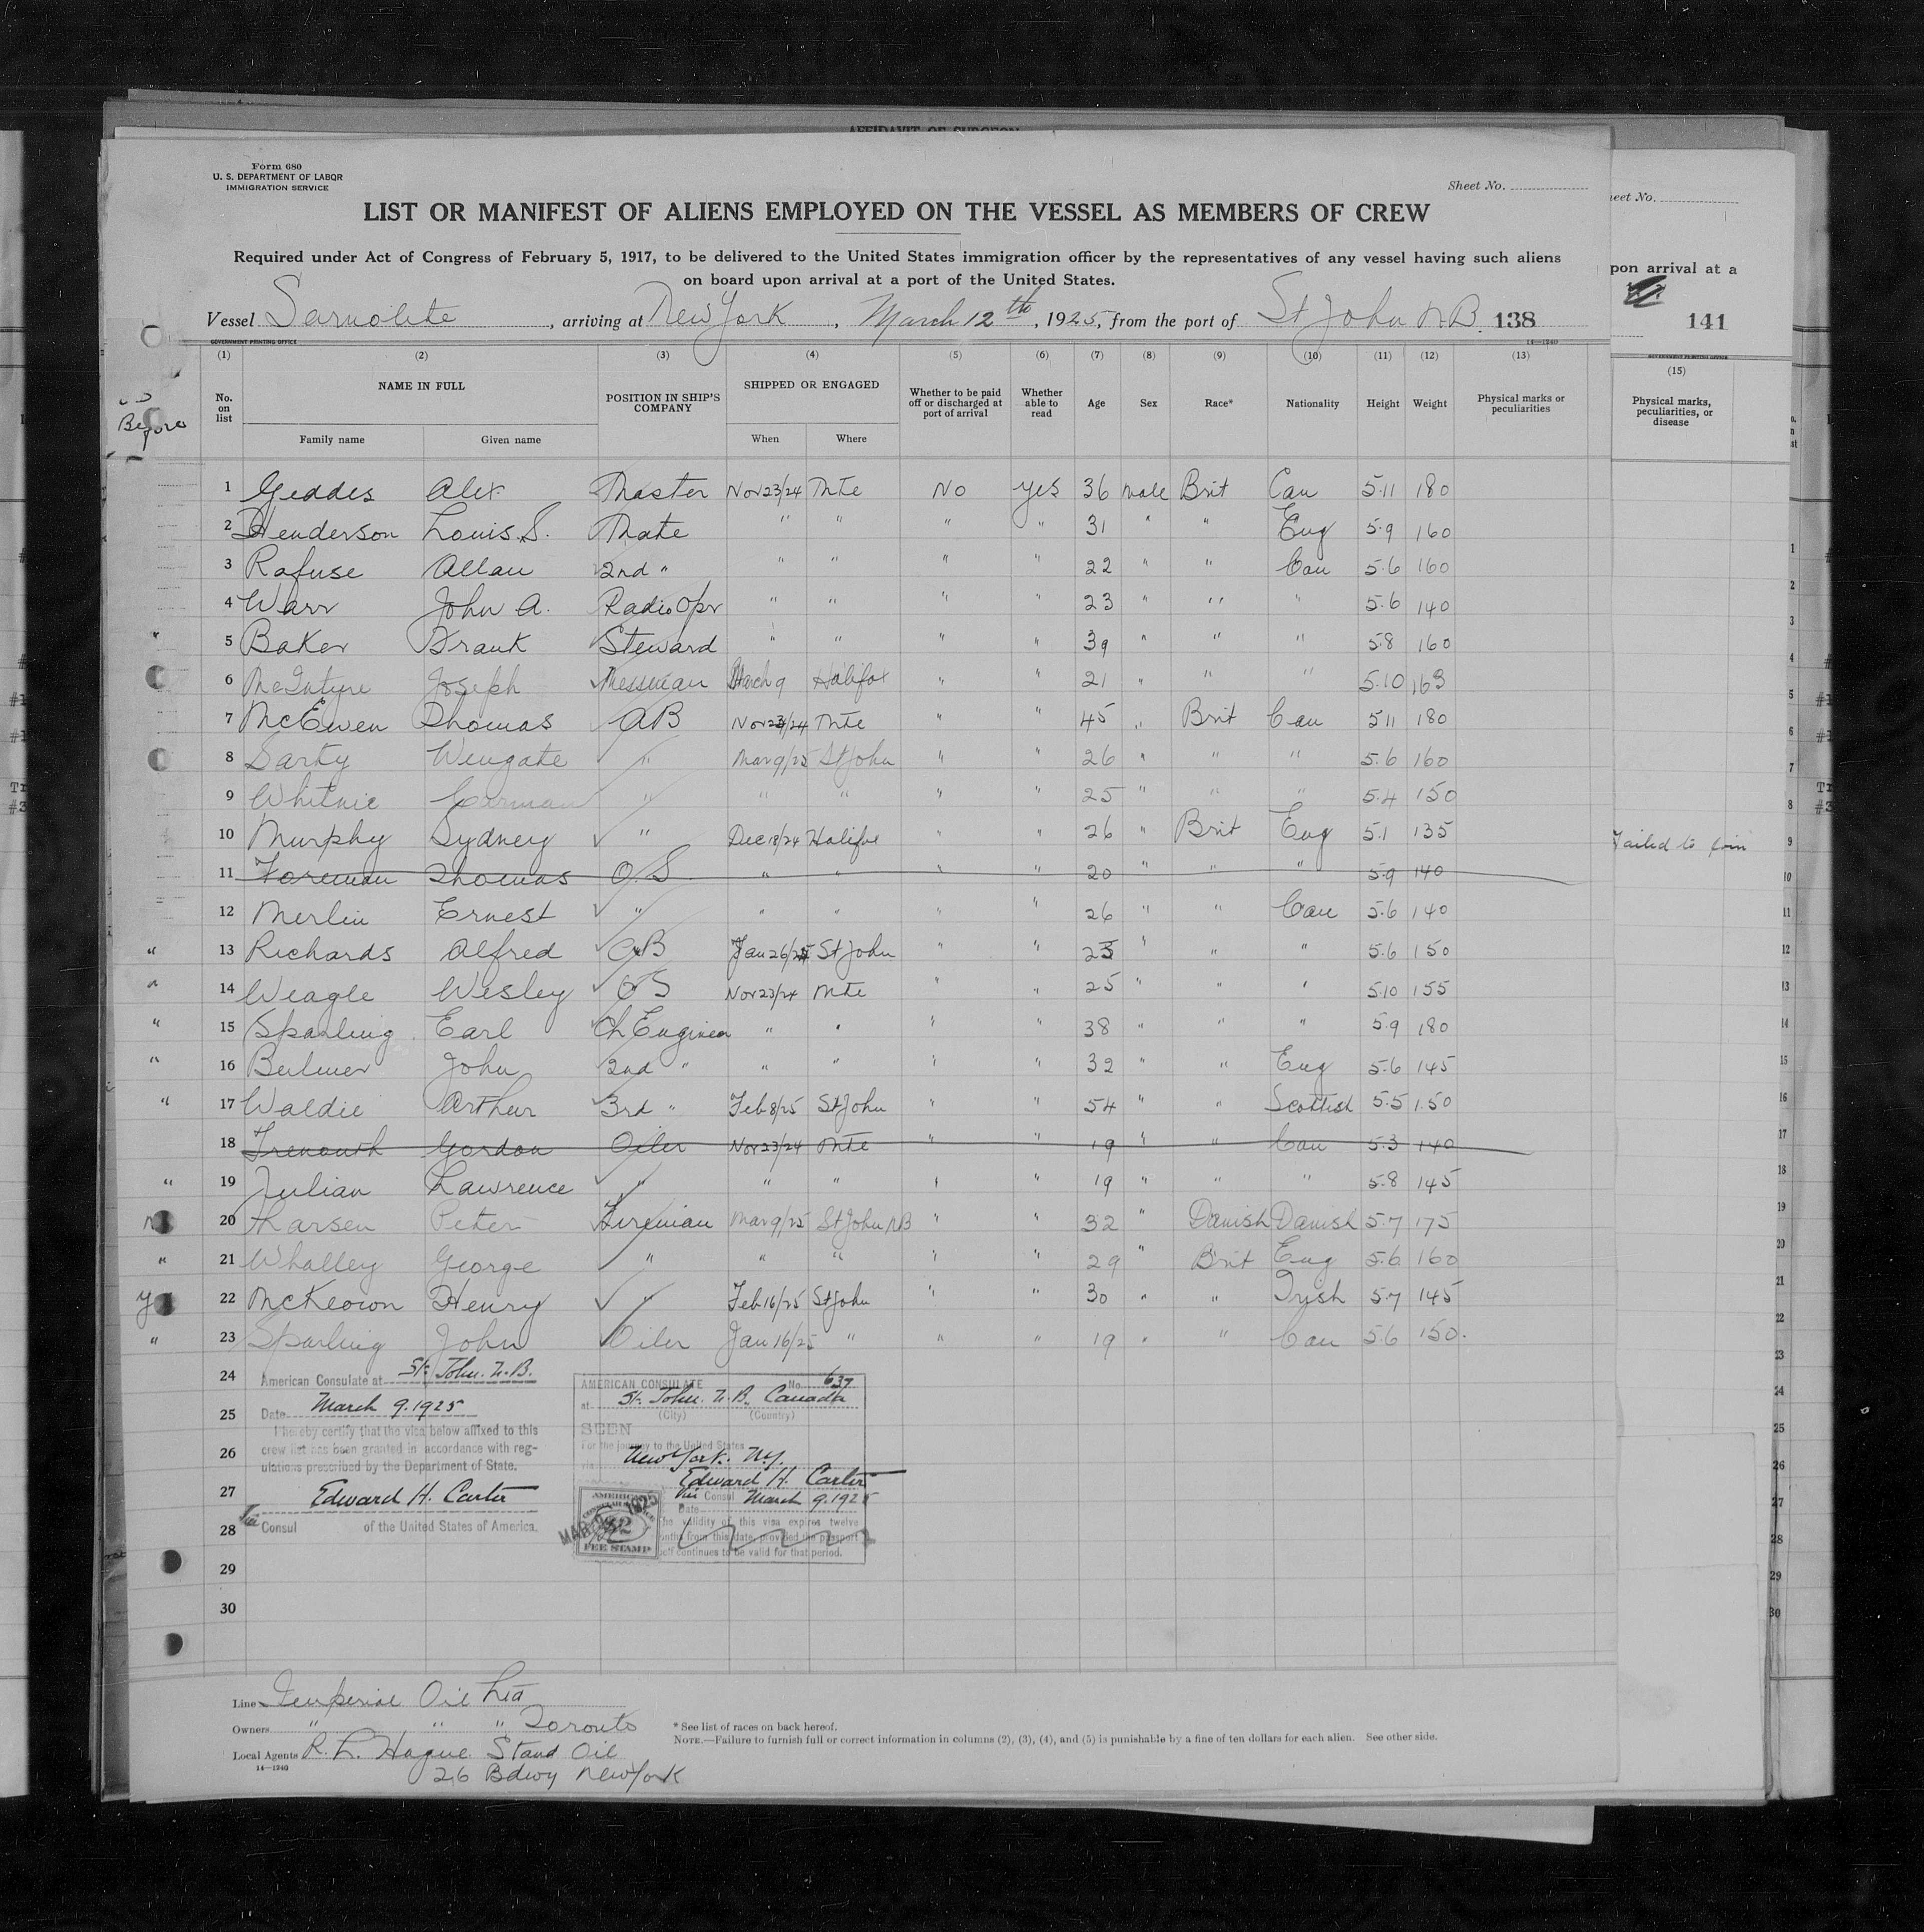 AFFIDAVIT OF SURGEON
Form 680
U. S. DEPARTMENT OF LABOR
IMMIGRATION SERVICE
Sheet No.
LIST OR MANIFEST OF ALIENS EMPLOYED ON THE VESSEL AS MEMBERS OF CREW
Required under Act of Congress of February 5, 1917, to be delivered to the United States immigration officer by the representatives of any vessel having such aliens
on board upon arrival at a port of the United States.
Vessel Sarnolite, arriving at New York, March 12th, 1925, from the port of St John N B. 138
GOVERNMENT PRINTING OFFICE 14—1240
(1) (2) (3) (4) (5) (6) (7) (8) (9) (10) (11) (12) (13)
No. on list NAME IN FULL POSITION IN SHIP'S COMPANY SHIPPED OR ENGAGED Whether to be paid off or discharged at port of arrival Whether able to read Age Sex Race* Nationality Height Weight Physical marks or peculiarities
Family name Given name When Where
Before
1 Geddes Alex Master Nov 23/24 Mte No yes 36 Male Brit Can 5.11 180
2 Henderson Louis. S. Mate " " " " 31 " " Eng 5.9 160
3 Rafuse Allan 2nd " " " " " 22 " " Can 5.6 160
4 Warr John A. Radio Opr " " " " 23 " " " 5.6 140
5 Baker Frank Steward " " " " 39 " " " 5.8 160
6 McIntyre Joseph Messman March 9 Halifax " " 21 " " " 5.10 163
7 McEwen Thomas AB Nov 23/24 Mte " " 45 " Brit Can 5 11 180
8 Sarty Wengate " Mar 9/25 St John " " 26 " " " 5.6 160
9 Whitnie Carman " " " " " 25 " " " 5.4 150
10 Murphy Sydney " Dec 18/24 Halifax " " 26 " Brit Eng 5.1 135
11 Foreman Thomas O.S " " " " 20 " " " 5.9 140
12 Merlin Ernest " " " " " 26 " " Can 5.6 140
13 Richards Alfred AB Jan 26/25 St John " " 23 " " " 5.6 150
14 Weagle Wesley OS Nov 23/24 Mte " " 25 " " " 5.10 155
15 Sparling Earl Ch Engineer " " " " 38 " " " 5.9 180
16 Bulmer John 2nd " " " " " 32 " " Eng 5.6 145
17 Waldie Arthur 3rd " Feb 8/25 St John " " 54 " " Scottish 5.5 150
18 Trenouth Gordon Oiler Nov 23/24 Mte " " 19 " " Can 5.3 140
19 Julian Lawrence " " " " " 19 " " " 5.8 145
20 Larsen Peter Fireman Mar 9/25 St John N B " " 32 " Danish Danish 5.7 175
21 Whalley George " " " " " 29 " Brit Eng 5.6 160
22 McKeown Henry " Feb 16/25 St John " " 30 " " Irish 5.7 145
23 Sparling John Oiler Jan 16/25 " " " 19 " " Can 5.6 150.
24
25
26
27
28
29
30
American Consulate at St. John. N.B.
Date March 9. 1925
I hereby certify that the visa below affixed to this
crew list has been granted in accordance with reg-
ulations prescribed by the Department of State.
Edward H. Carter
Vice Consul of the United States of America.
AMERICAN CONSULATE No. 637
at St. John. N.B. Canada
(City) (Country)
SEEN
For the journey to the United States
via New York. N.Y.
Edward H. Carter
Vice Consul
Date March 9. 1925
The validity of this visa expires twelve
months from this date, provided the passport
itself continues to be valid for that period.
AMERICAN
$2
FEE STAMP
Line Imperial Oil Ltd
Owners " " " Toronto
Local Agents R. L. Hague Stand Oil
26 Bdwy New York
14—1240
* See list of races on back hereof.
NOTE.—Failure to furnish full or correct information in columns (2), (3), (4), and (5) is punishable by a fine of ten dollars for each alien. See other side.
eet No.
pon arrival at a
141
GOVERNMENT PRINTING OFFICE
(15)
Physical marks,
peculiarities, or
disease
Failed to join
1
2
3
4
5
6
7
8
9
10
11
12
13
14
15
16
17
18
19
20
21
22
23
24
25
26
27
28
29
30